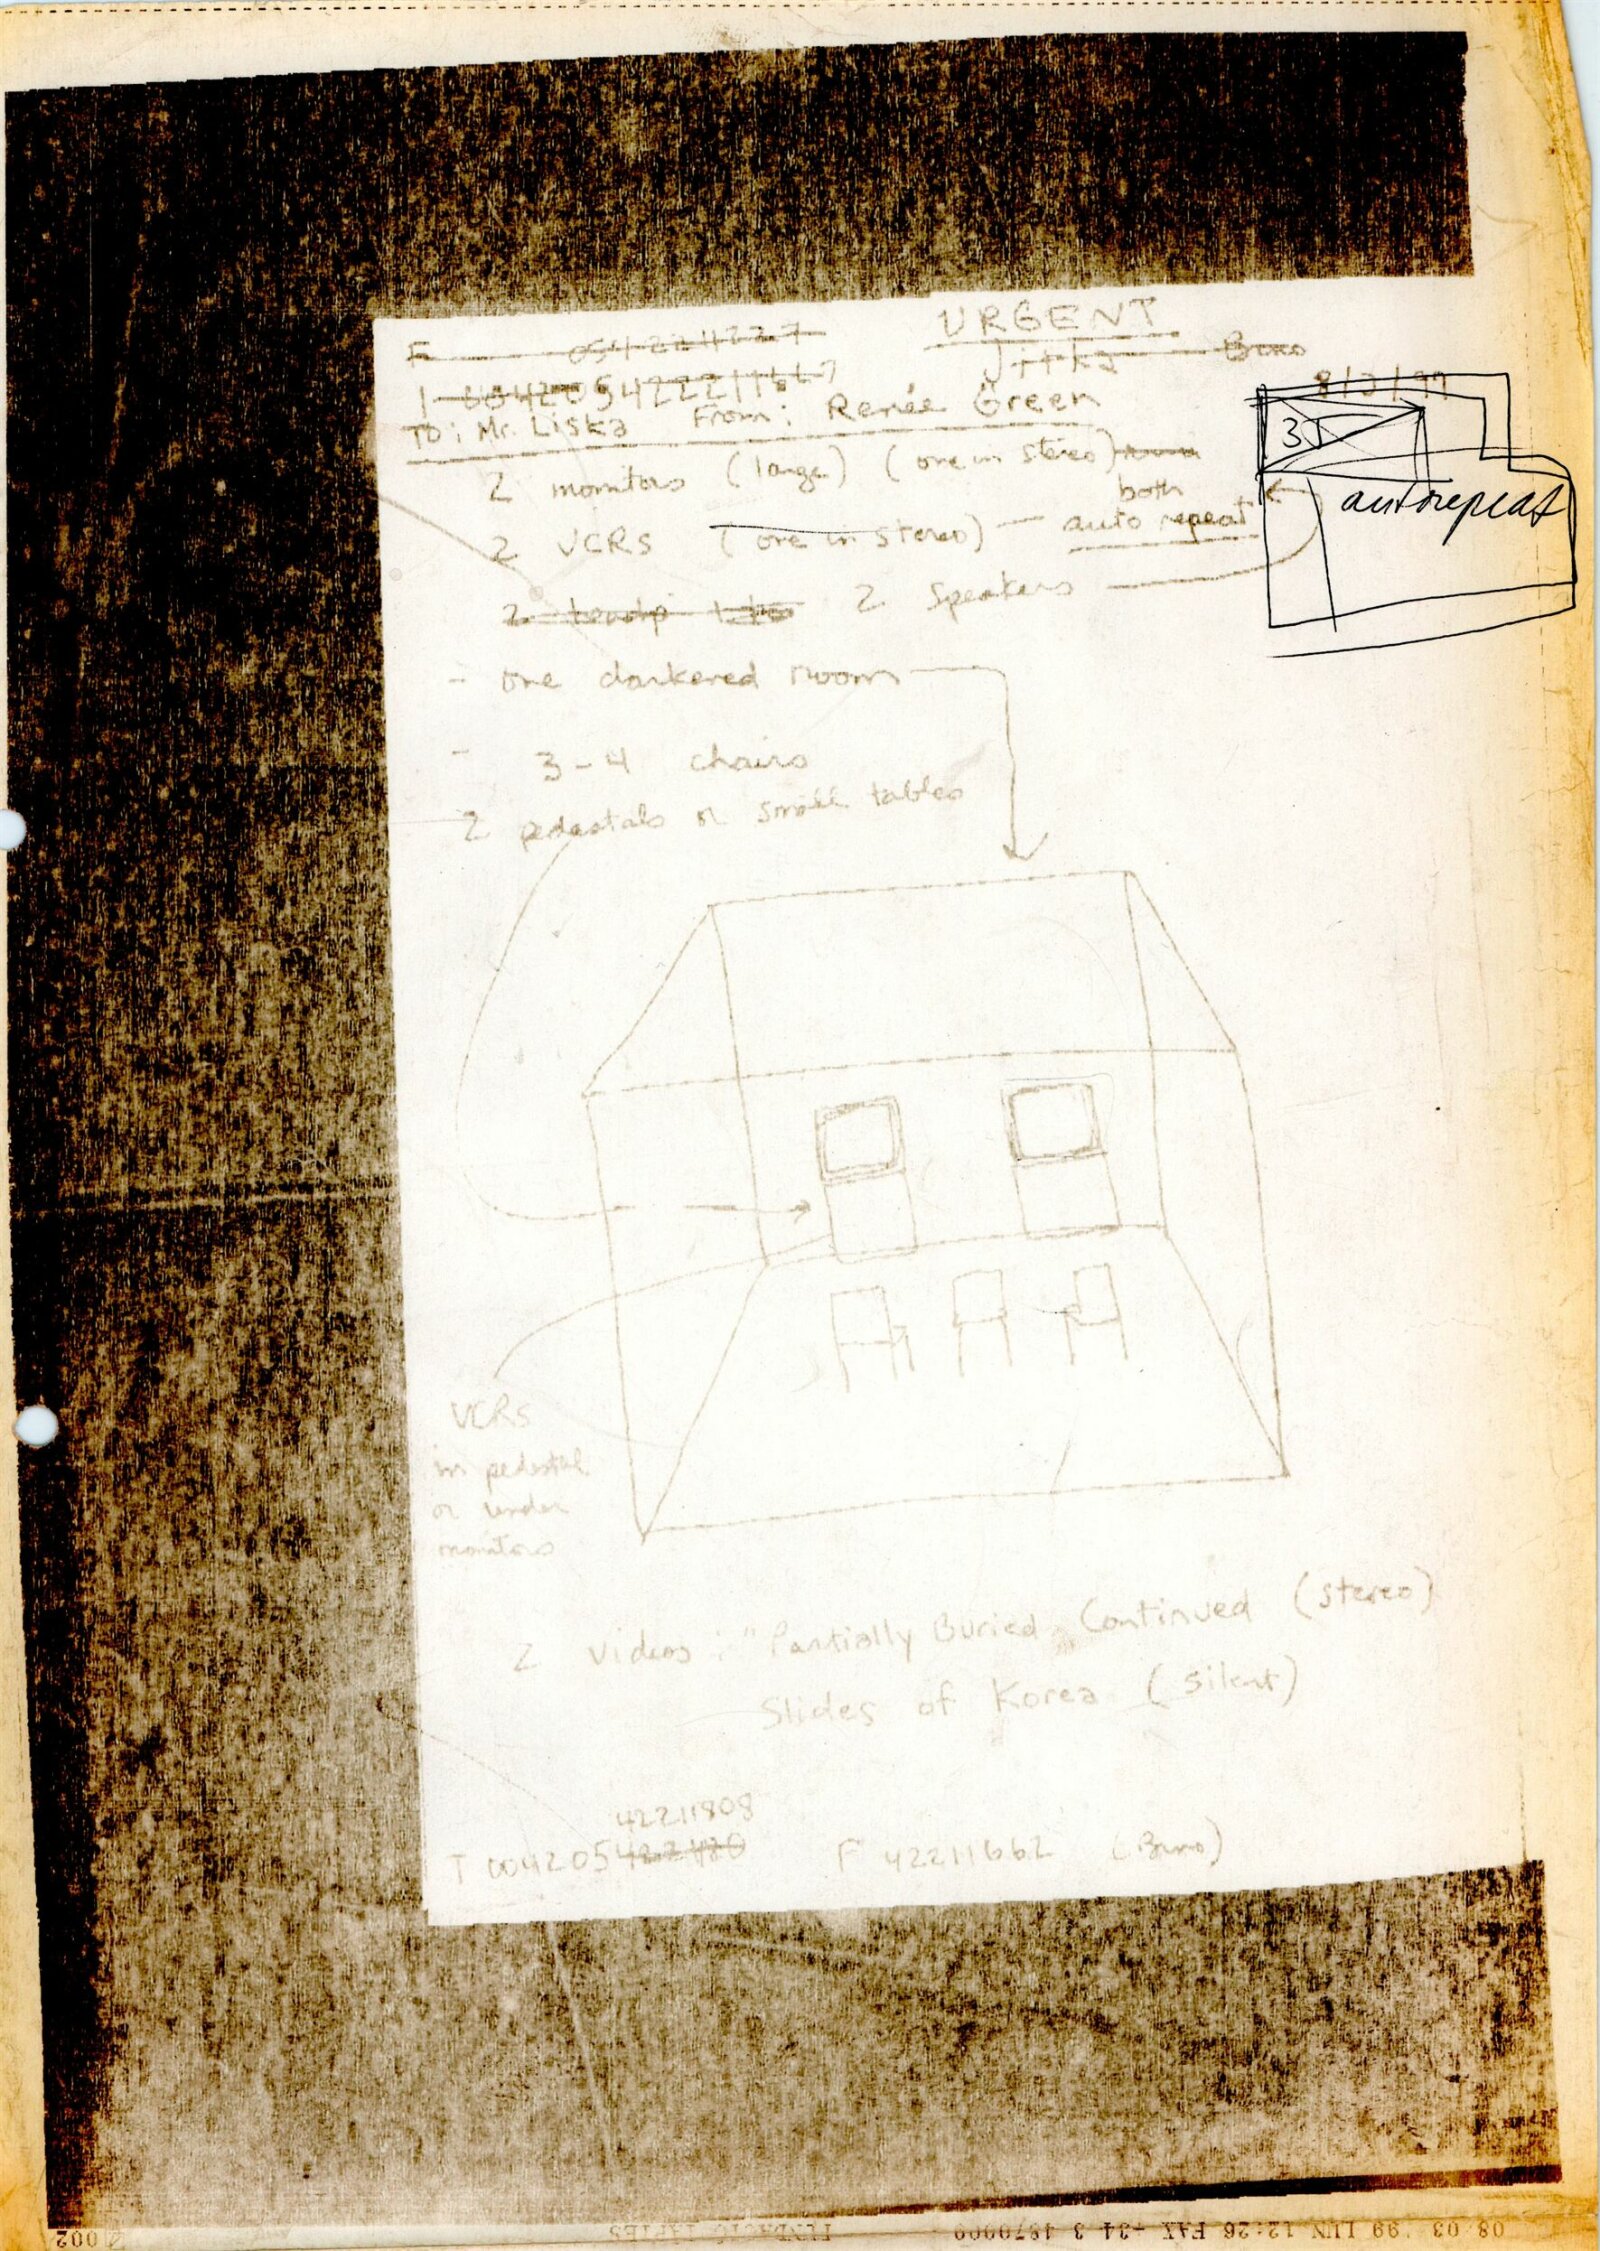 URGENT
F 054224227
Jitka Brno
8/3/99
TO: Mr. Liska From: Renée Green
2 monitors (large) (one in stereo)
both
2 VCRs (one in stereo) — auto repeat
3J
autorepeat
2 2 Speakers
- one darkened room
- 3-4 chairs
2 pedestals or small tables
VCRs
in pedestal
or under
monitors
2 videos: "Partially Buried Continued (stereo)
Slides of Korea (silent)
42211808
T 0042054222420 F 42211662 (Brno)
08/03 '99 LUN 12:26 FAX +34 3 4870009 FUNDACIO TAPIES 002